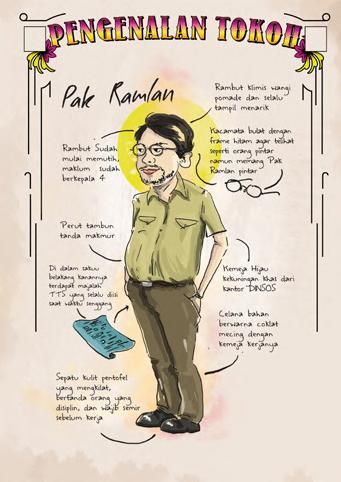 PENGENALAN TOKOH
Pak Ramlan
Rambut klimis wangi
pomade dan selalu
tampil menarik
Rambut Sudah
mulai memutih,
maklum sudah
berkepala 4
Kacamata bulat dengan
frame hitam agar telihat
seperti orang pintar
namun memang Pak
Ramlan pintar
Perut tambun
tanda makmur
Di dalam sakuu
belakang kanannya
terdapat majalah
TTS yang selalu diisi
saat waktu senggang
Kemeja Hijau
kekuningan khas dari
kantor DINSOS
Celana bahan
berwarna coklat
mecing dengan
kemeja kerjanya
Sepatu kulit pentofel
yang mengkilat,
bertanda orang yang
disiplin, dan wajib semir
sebelum kerja